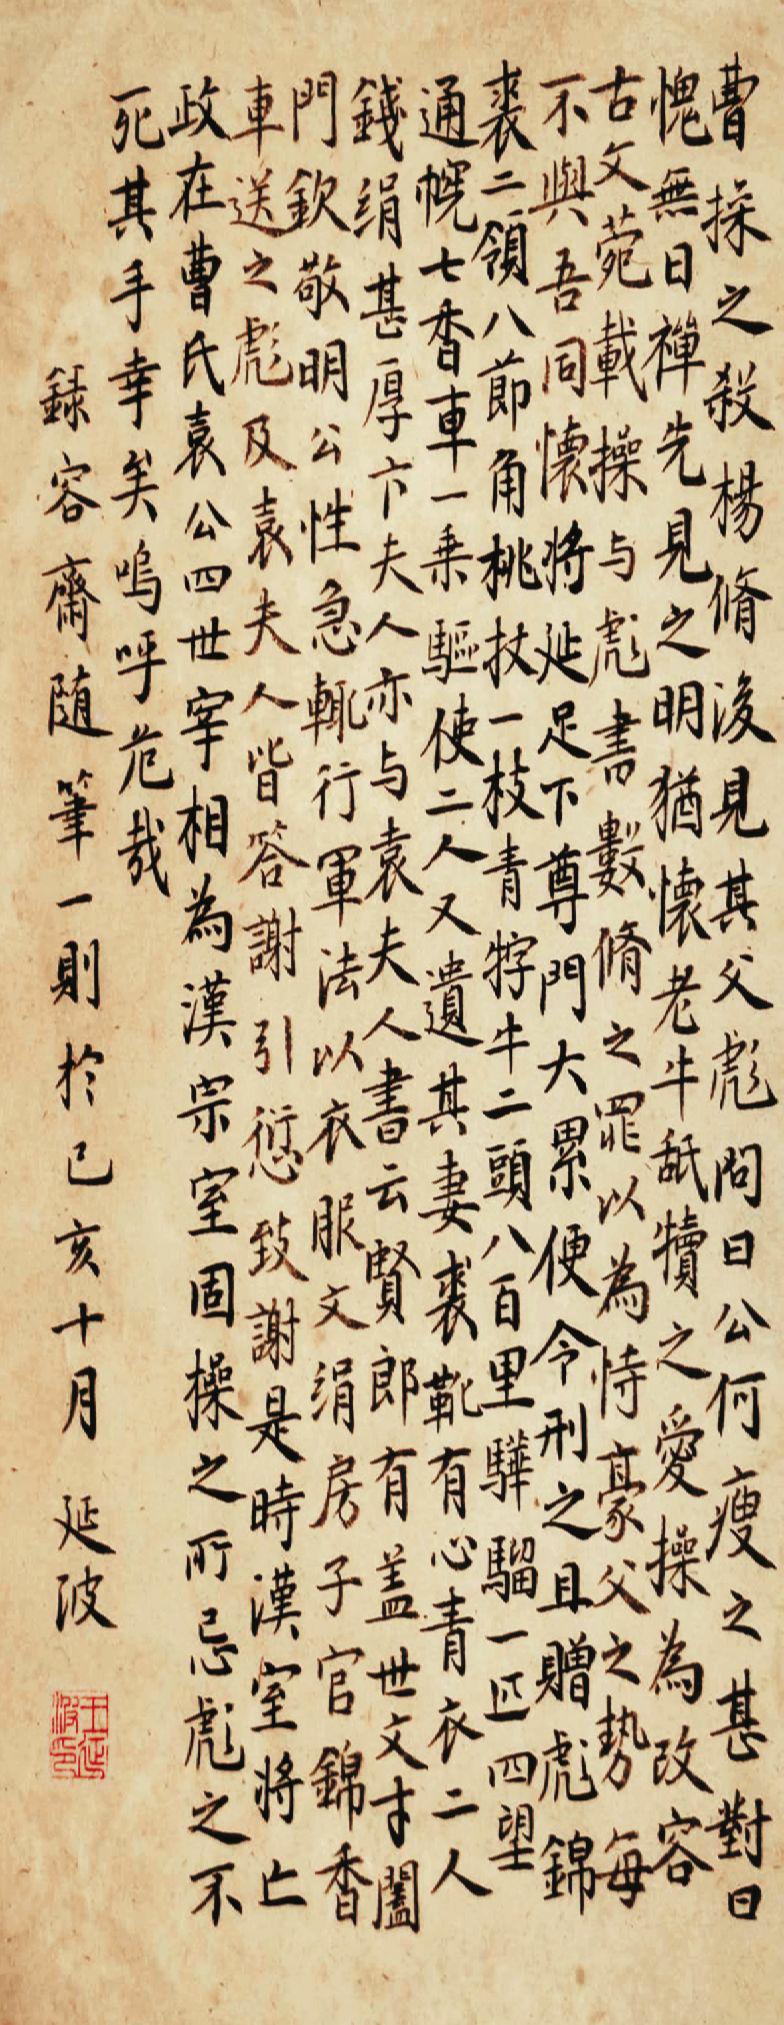 曹操之殺楊脩後見其父彪問曰公何瘦之甚對曰
愧無日磾先見之明猶懷老牛舐犢之愛操為改容
古文菀載操与彪書數脩之罪以為恃豪父之势每
不與吾同懷将延足下尊門大累便令刑之且贈彪錦
裘二領八節角桃杖一枝青牸牛二頭八百里驊騮一匹四望
通幌七香車一乗驅使二人又遺其妻裘靴有心青衣二人
錢绢甚厚卞夫人亦与袁夫人書云賢郎有盖世文才闔
門欽敬明公性急輒行軍法以衣服文绢房子官錦香
車送之彪及袁夫人皆答謝引愆致謝是時漢室将亡
政在曹氏袁公四世宰相為漢宗室固操之所忌彪之不
死其手幸矣嗚呼危哉
録容齋随筆一則於己亥十月 延波
王延波印